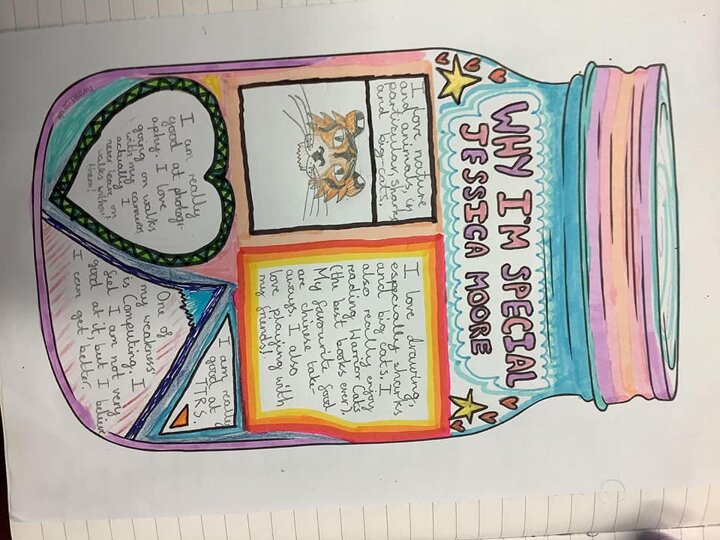 WHY I'M SPECIAL
JESSICA MOORE
I love nature
and animals, in
particular, sharks
and big cats.
I love drawing,
especially sharks
and big cats. I
also really enjoy
reading Warrior Cats
(the best books ever).
My favourite food
are chinese take
aways. I also
love playing with
my friends!
I am really
good at photogr
aphy. I love
going on walks
with my camera
actually I
never leave on
walks without
them!
I am really
good at
TTRS.
One of
my weakness
is Computing. I
feel I am not very
good at it, but I believe
I can get better.